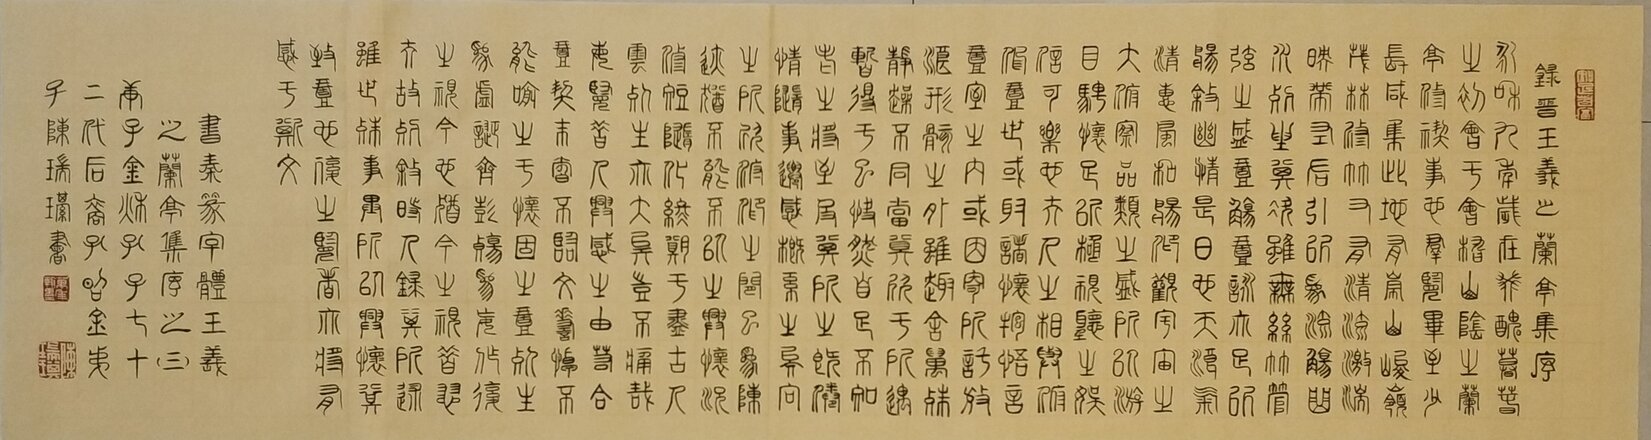 錄晉王羲之蘭亭集序
永和九年歲在癸醜暮春
之初會于會稽山陰之蘭
亭修禊事也羣賢畢至少
長咸集此地有崇山峻嶺
茂林修竹又有清流激湍
映帶左右引以為流觴曲
水列坐其次雖無絲竹管
弦之盛壹觴壹詠亦足以
暢敘幽情是日也天浪氣
清惠風和暢仰觀宇宙之
大俯察品類之盛所以游
目騁懷足以極視聽之娛
信可樂也夫人之相與俯
仰壹世或取諸懷抱悟言
壹室之內或因寄所託放
浪形骸之外雖趣舍萬殊
靜躁不同當其欣于所遇
暫得于己快然自足不知
老之將至及其所之既倦
情隨事遷感慨系之矣向
之所欣俯仰之間已為陳
跡猶不能不以之興懷況
修短隨化終期于盡古人
雲死生亦大矣豈不痛哉
每覽昔人興感之由若合
壹契未嘗不臨文嗟悼不
能喻之于懷固之壹死生
為虛誕齊彭殤為妄作後
之視今也猶今之視昔悲
夫故列敘時人錄其所述
雖世殊事異所以興懷其
致壹也後之覽者亦將有
感于斯文
書秦篆字體王羲
之蘭亭集序之(三)
庚子金秋孔子七十
二代后裔孔昭金弟
子陳瑞書